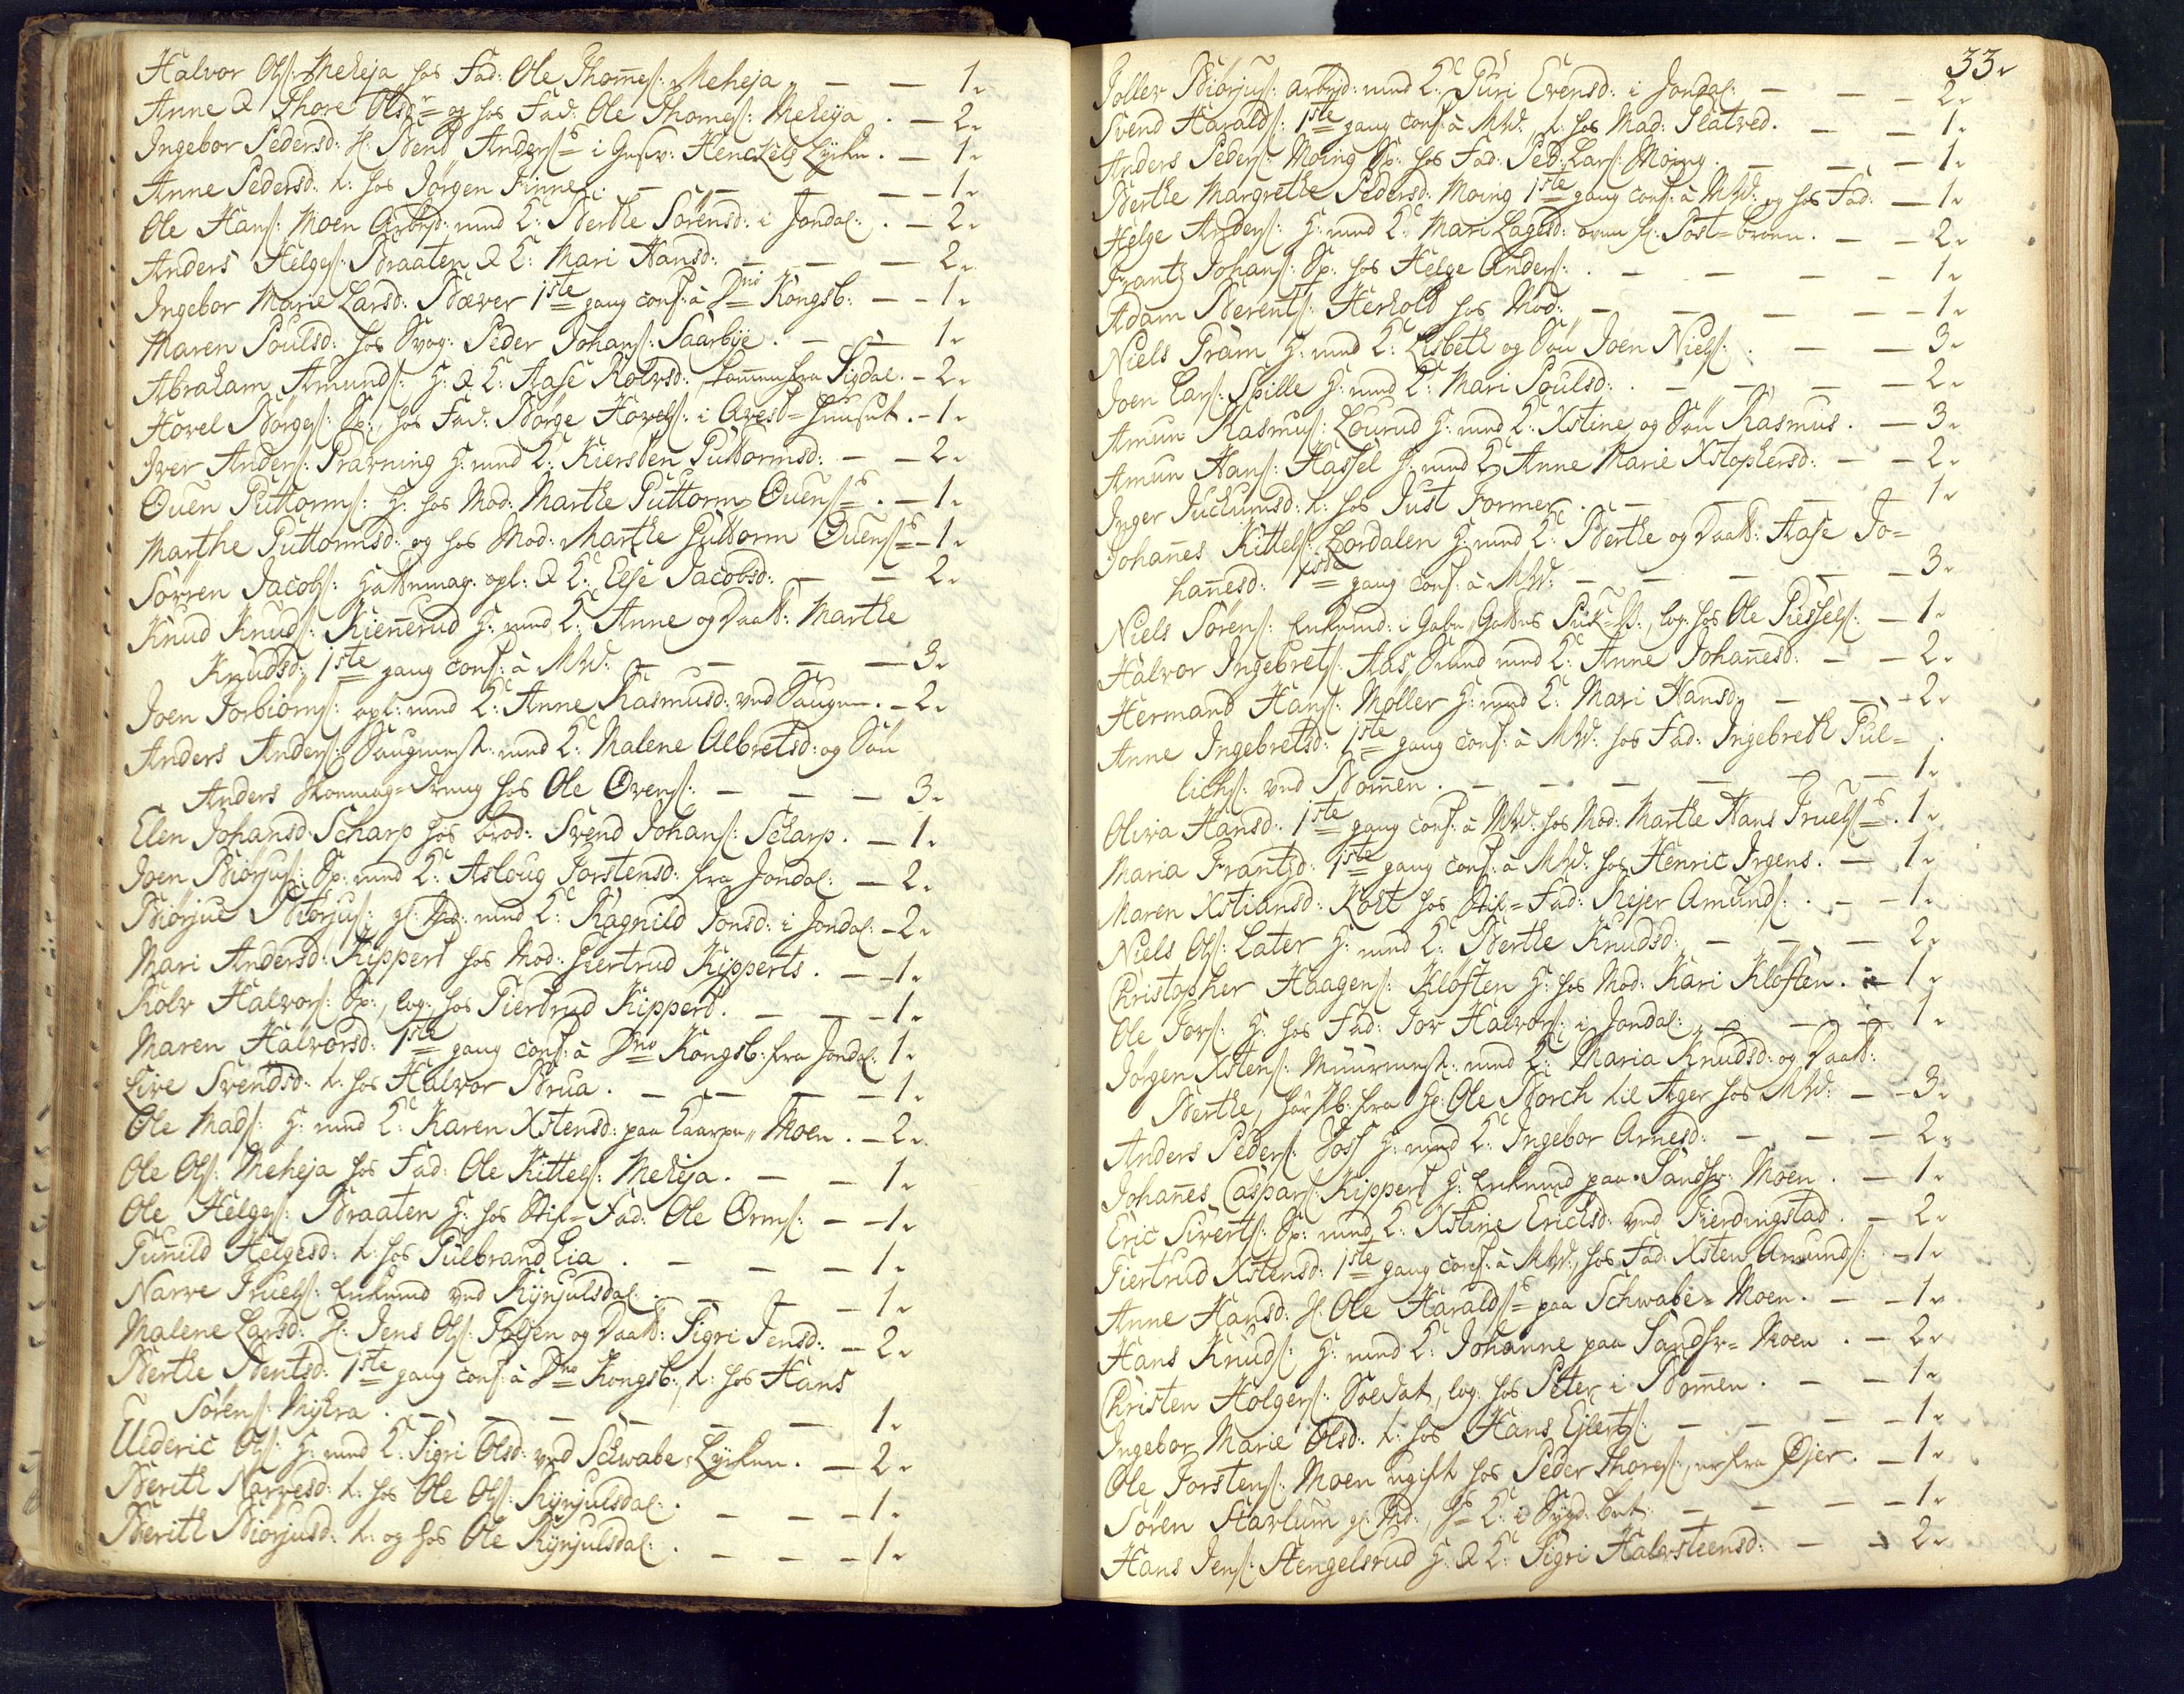 Halvor Ols: Meheja hos Fad: Ole Thomes: Meheja, — — 1.
Anne & Thore Olsdr= og hos Fad: Ole Thomes: Meheja. — 2.
Ingebor Pedersd: H: Bend Anders= i Gusv: Henckels Lycke. — 1.
Anne Pedersd: t: hos Jørgen Finne. — — — — 1.
Ole Hans: Moen Arbejd: med K: Berthe Sørensd: i Jondal: . — 2.
Anders Helges: Braaten & K: Mari Hansd: — — — 2.
Ingebor Marie Larsd: Bæver 1ste gang conf: à Dno Kongsb: — — 1.
Maren Poulsd: hos Svog: Peder Johans: Saarbye. — — 1.
Abraham Amunds: G: & K: Aase Rolvsd: kommen fra Sigdal. — 2.
Hovel Børges: Sp: hos Fad: Børge Hovels: i Arest=huuset. — 1.
Iver Anders: Pravning G: med K: Kiersten Guttormsd: — — 2.
Ouen Guttorms: G: hos Mod: Marthe Guttorm Ouens= . — 1.
Marthe Guttormsd: og hos Mod: Marthe Guttorm Ouens= — 1.
Sörren Jacobs: Hattemag: opl: & K: Else Jacobsd: — — 2.
Knud Knuds: Kiennerud G: med K: Anne og Daatt: Marthe
Knudsd: 1ste gang conf: à MW: — — — — 3.
Joen Torbiörns: opl: med K: Anne Rasmusd: ved Saugen. — 2.
Anders Anders: Saugmest: med K: Malene Albretsd: og Sön
Anders Skoemag=dreng hos Ole Ovens: — — — 3.
Elen Johansd: Scharp hos brod: Svend Johans: Scharp. — 1.
Joen Biörjus: Sp: med K: Asloug Torstensd: fra Jondal: — 2.
Biörjue Biörjus: gl: med K: Ragnild Jonsd: i Jondal: — 2.
Mari Andersd: Kippert hos Mod: Giertrud Kipperts. — — 1.
Rolv Halvors: Sp:, log: hos Giertrud Kippert. — — — 1.
Maren Halvorsd: 1ste gang conf: à Dno Kongsb: fra Jondal: 1.
Live Svendsd: t: hos Halvor Brua. — — — — 1.
Ole Mads: G: med K: Karen Xstensd: paa Taarpe Moen. — 2.
Ole Ols: Meheja hos Fad: Ole Kittels: Meheja. — — 1.
Ole Helges: Braaten G: hos Stif=Fad: Ole Orms: — — 1.
Gunild Helgesd: t: hos Gulbrand Lia. — — — 1.
Narve Truels: Enkemd ved Kynjulsdal: . — — — 1.
Malene Larsd: H: Jens Ols: Foljen og Daatt: Sigri Jensd: — 2.
Berthe Bentsd: 1ste gang conf: à Dno Kongsb:, t: hos Hans
Sörens: Nykra. — — — — — — 1.
Uideric Ols: G: med K: Sigri Olsd: ved Schwabe-Lycken. — 2.
Berith Narvesd: t: hos Ole Ols: Kynjulsdal: . — — — 1.
Berith Biörjusd: t: og hos Ole Kynjulsdal: . — — — 1.
33.
Toller Biörjus: arbejd: med K: Guri Evensd: i Jondal: — — — 2.
Svend Haralds: 1ste gang conf: à MW:, t: hos Mad: Platved. — — 1.
Anders Peders: Moing Sp: hos Fad: Ped: Lars: Moing. — — — 1.
Berthe Margrethe Pedersd: Moing 1ste gang conf: à MW: og hos Fad: — 1.
Helge Anders: G: med K: Mari Lagesd: oven f: Post=broen. — — 2.
Frantz Johans: Sp: hos Helge Anders: . — — — — 1.
Adam Berents: Herhold hos Mod: — — — — — 1.
Niels Pram G: med K: Lisbeth og Sön Joen Niels: . — — 3.
Joen Lars: Spille G: med K: Mari Poulsd: . — — — — 2.
Amun Rasmus: Lourud G: med K: Xstine og Sön Rasmus. — 3.
Amun Hans: Hassel G: med K: Anne Marie Xstophersd: — — 2.
Inger Juchumsd: t: hos Just Former. — — — — 1.
Johannes Kittels: Lordalen G: med K: Berthe og Daatt: Aase Jo=
hannesd: 1ste gang conf: à MW: — — — — — 3.
Niels Sörens: Enkemd: i Gabe Gottes log: hos Ole Piessels: — 1.
Halvor Ingebrets: Aas med K: Anne Johannesd: — — 2.
Hermand Hans: Møller G: med K: Mari Hansd: — — — 2.
Anne Ingebretsd: 1ste gang conf: à MW: hos Fad: Ingebreth Gul=
lichs: ved Bommen. — — — — — — 1.
Oliva Hansd: 1ste gang conf: à MW: hos Mod: Marthe Hans Truels= . 1.
Maria Frantzd: 1ste gang conf: à MW: hos Henric Irgens. — 1.
Maren Xstiansd: Kort hos Stif=Fad: Rejer Amunds: . — — 1.
Niels Ols: Later G: med K: Berthe Knudsd: — — — 2.
Christopher Haagens: Klöften G: hos Mod: Kari Klöften. — 1.
Ole Tors: G: hos Fad: Tor Halvors: i Jondal: — — — 1.
Jörgen Xstens: Muurmest: med K: Maria Knudsd: og Daatt:
Berthe, har fra Hr: Ole Borch til Ager hos MW: — — 3.
Anders Peders: Foss G: med K: Ingebor Arnesd: — — — 2.
Johannes Caspars: Kippert G: Enkemd paa Sandsv: Moen. — 1.
Eric Siverts: Sp: med K: Xstine Ericksd: ved Fierdingstad. — 2.
Giertrud Xstensd: 1ste gang conf: à MW: hos Fad: Xsten Amunds: — 1.
Anne Hansd: H: Ole Haralds= paa Schwabe=Moen. — — 1.
Hans Knuds: G: med K: Johanne paa Sandsv=Moen. — 2.
Christen Holgers: Soldat, log: hos Peter i Bommen. — — 1.
Ingebor Marie Olsd: t: hos Hans Ejlerts: — — — — 1.
Ole Torstens: Moen ugift hos Peder Thores:, er fra Öjer. — 1.
Sören Starlum gl: K: i — — — 1.
Hans Jens: Stengelsrud G: & K: Sigri Halvsteensd: — — 2.